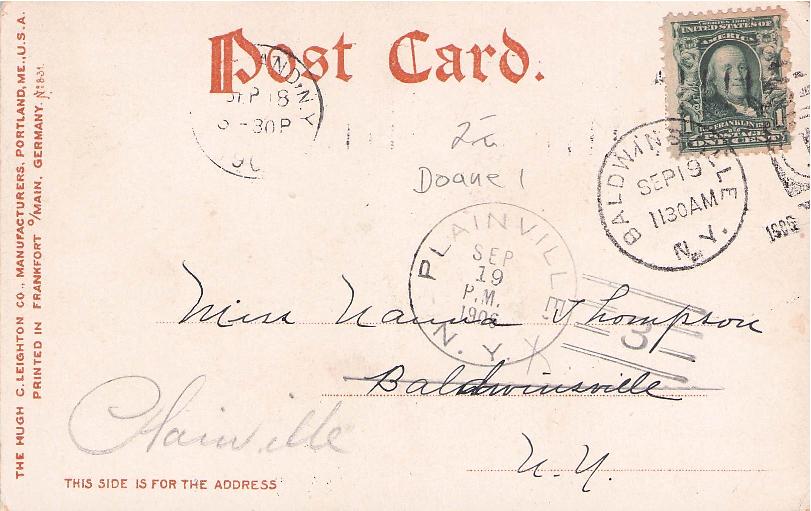 Post Card.
SERIES 1902
UNITED STATES OF
AMERICA
FRANKLIN
1 1
ONE CENT
AND, N.Y.
SEP 18
-30P
BALDWINSVILLE
SEP 19
1130AM
N.Y.
Doane 1
PLAINVILLE
SEP
19
P.M.
1906
N.Y.
3
Miss Nanna Thompson
Baldwinsville
Plainville
N.Y.
THIS SIDE IS FOR THE ADDRESS
THE HUGH C. LEIGHTON CO., MANUFACTURERS, PORTLAND, ME., U.S.A.
PRINTED IN FRANKFORT o/MAIN, GERMANY.